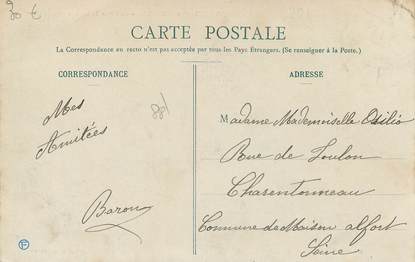 30 €
CARTE POSTALE
La Correspondance au recto n'est pas acceptée par tous les Pays Étrangers. (Se renseigner à la Poste.)
CORRESPONDANCE
ADRESSE
Mes
Amitées
Baron
Madame Mademoiselle
Rue de Toulon
Charentonneau
Commune de Maison alfort
Seine